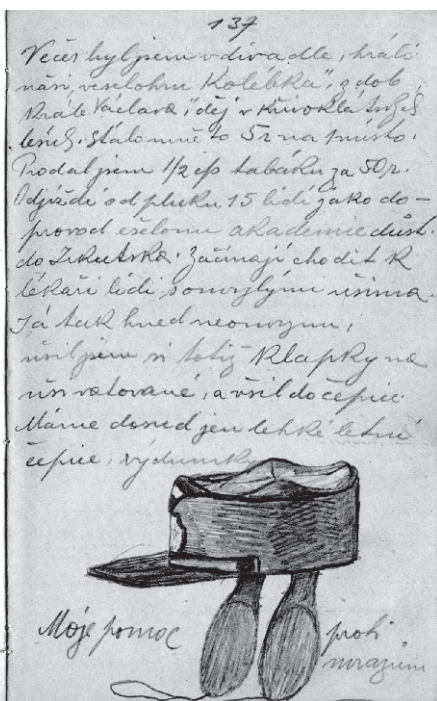 137
Večer byl jsem v divadle, hráli
naši veselohru "Kolébka", z dob
krále Václava, děj v Křivoklátských
lesích. Stálo mně to 5r na 1 místo.
Prodal jsem 1/2 tabáku za 50r.
Odjíždí od pluku 15 lidí jako do-
provod ešelonu akademie důst.
do Irkutska. Začínají chodit k
lékaři lidi s omrzlými ušima.
Já tak hned neomrznu,
ušil jsem si totiž klapky na
uši vatované, a všil do čepice.
Máme dosud jen lehké letní
čepice, výdumky
Moje pomoc proti
mrazům